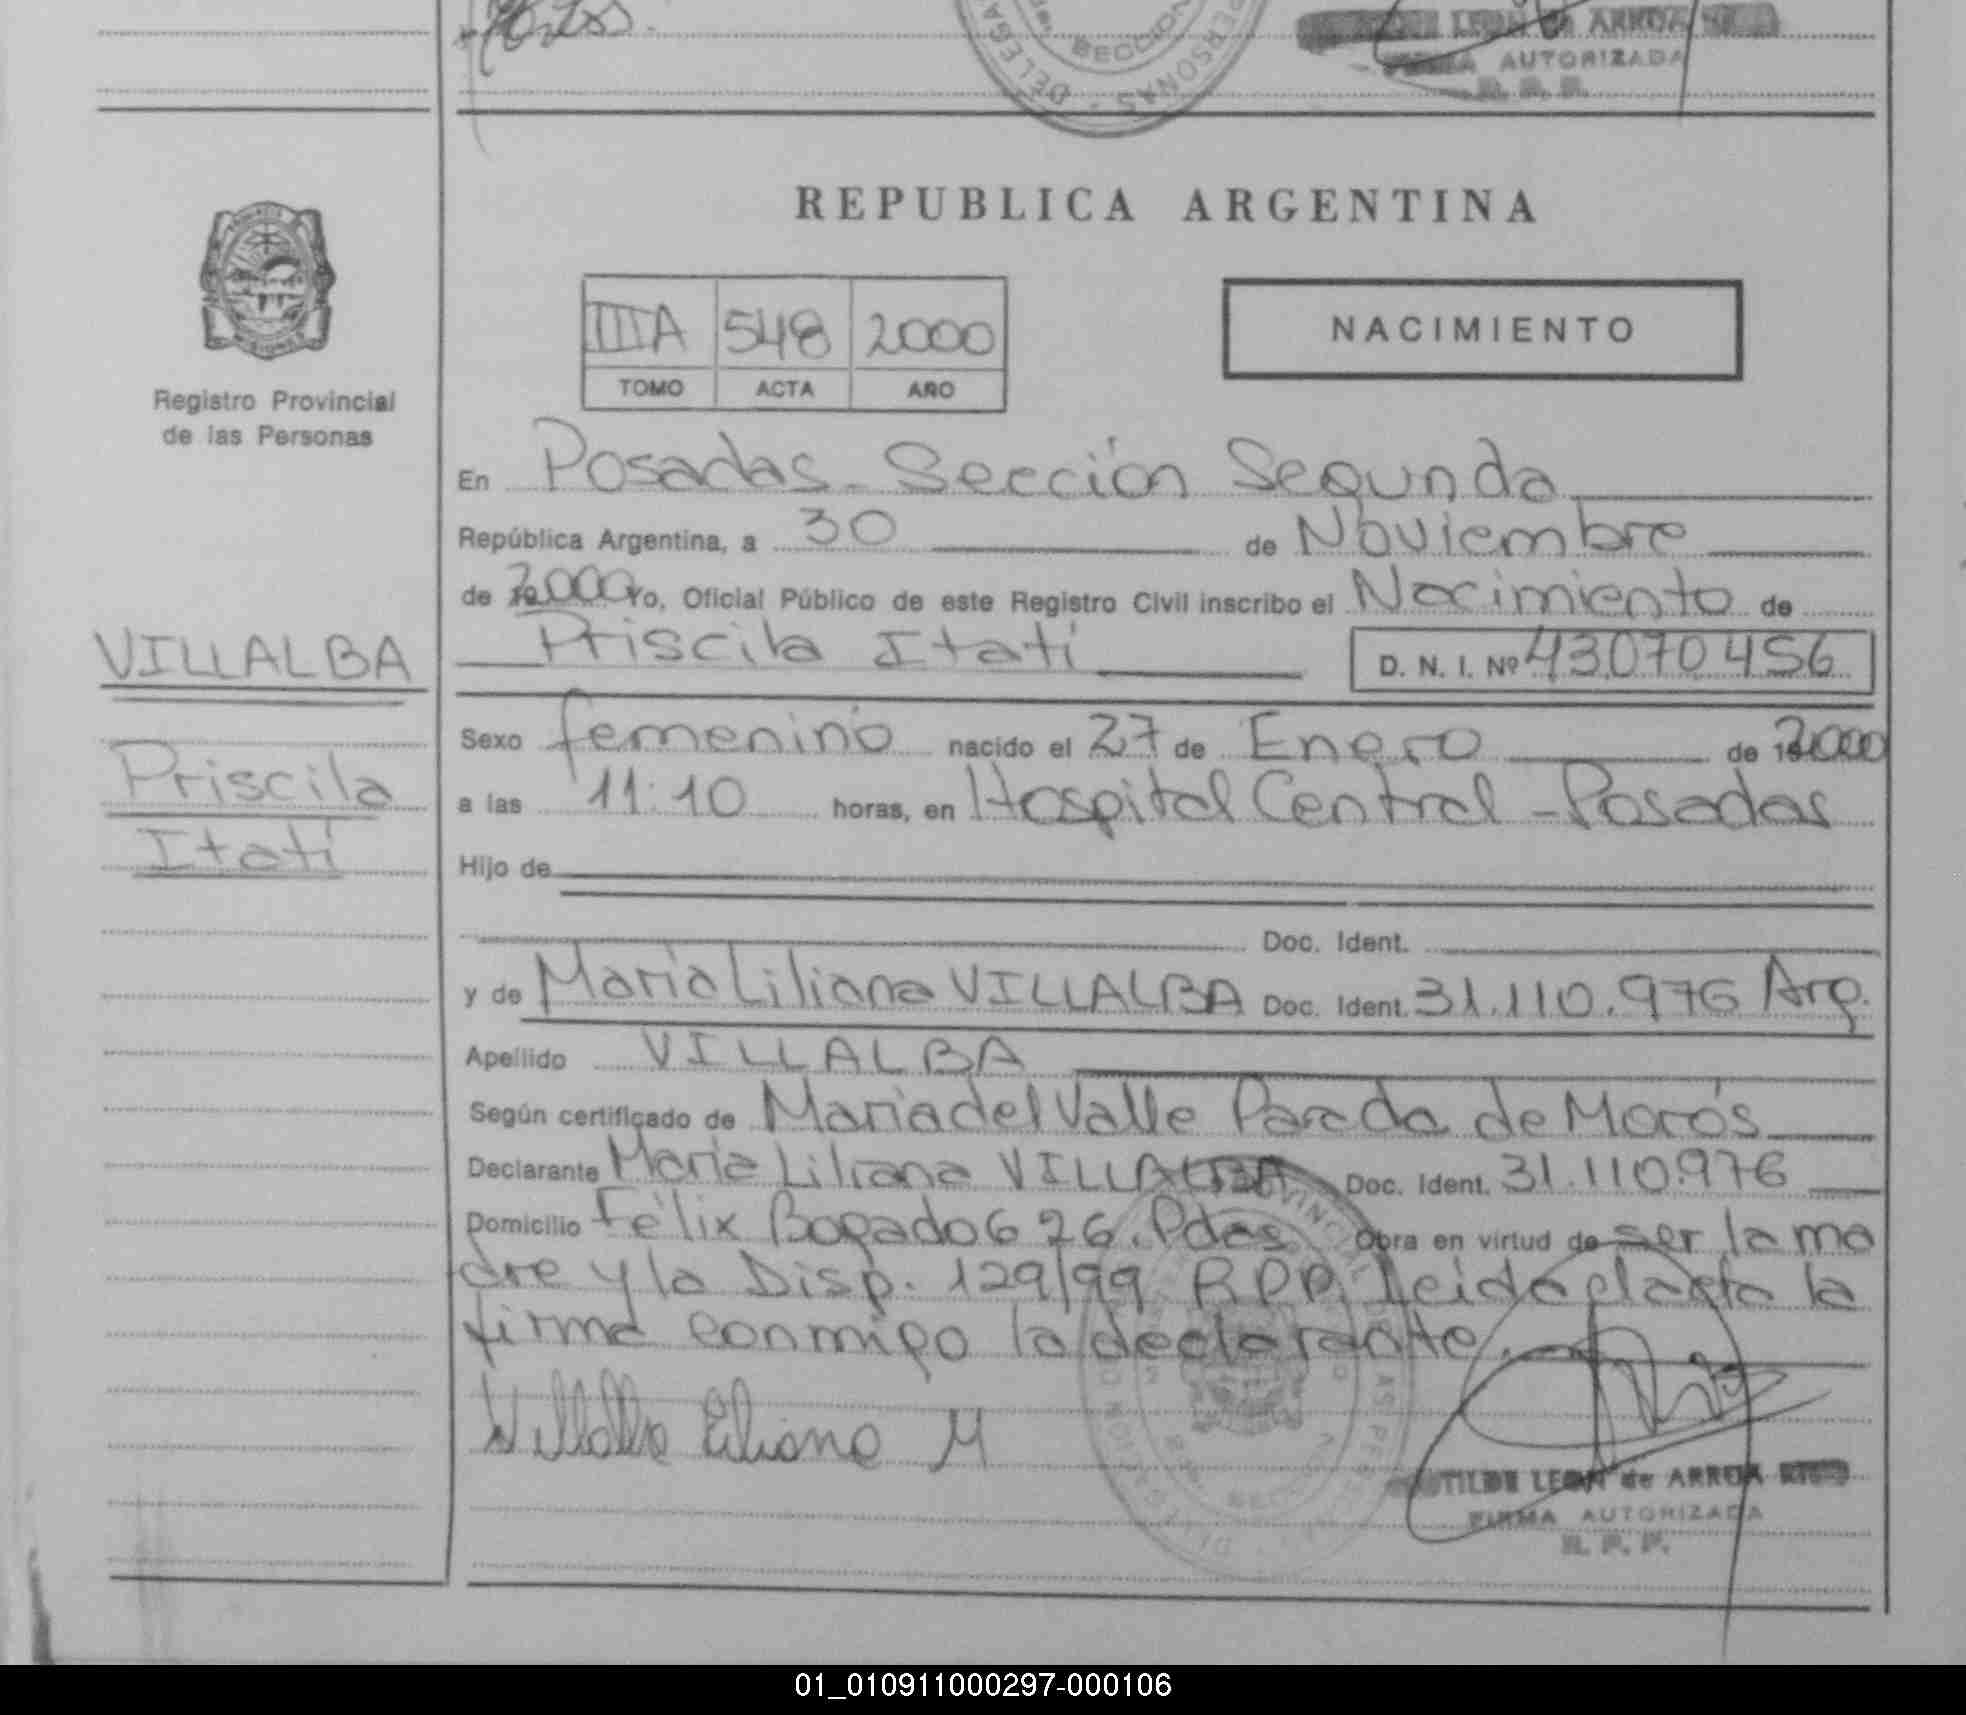 SECCION
PERSONAS - DELEGA
LEON de ARRUA
AUTORIZADA
R. P. P.
REPUBLICA ARGENTINA
IIIA 548 2000
TOMO ACTA AÑO
NACIMIENTO
Registro Provincial
de las Personas
En Posadas - Sección Segunda
República Argentina, a 30 de Noviembre
de 2000 Yo, Oficial Público de este Registro Civil inscribo el Nacimiento de
Priscila Itatí D. N. I. Nº 43.070.456
VILLALBA
Priscila
Itatí
Sexo femenino nacido el 27 de Enero de 2000
a las 11:10 horas, en Hospital Central - Posadas
Hijo de
Doc. Ident.
y de María Liliana VILLALBA Doc. Ident. 31.110.976 Arg.
Apellido VILLALBA
Según certificado de María del Valle Parada de Morós
Declarante María Liliana VILLALBA Doc. Ident. 31.110.976
Domicilio Félix Bogado 626. Pdas Obra en virtud de ser la ma
dre y la Disp. 129/99 RPP. Leida el acta la
firma conmigo la declarante.
Villalba Liliana M
LEON de ARRUA
FIRMA AUTORIZADA
R. P. P.
01_010911000297-000106